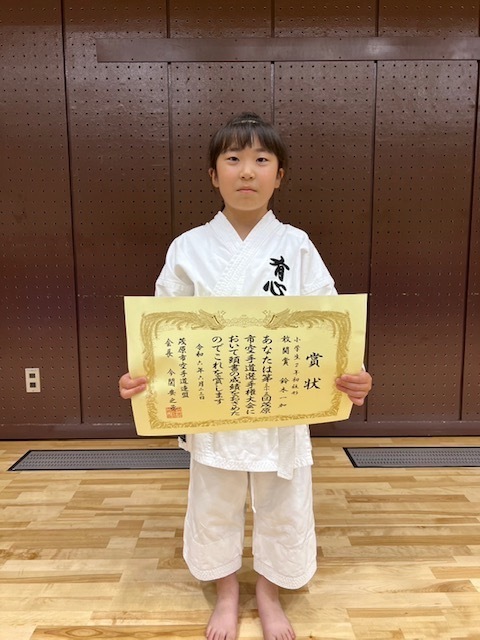 育心
賞状
小学生2年初級形
敢闘賞 鈴木一和
あなたは第三十回茂原
市空手道選手権大会に
おいて頭書の成績をおさめた
のでこれを賞します
令和六年六月二三日
茂原市空手道連盟
会長 今関